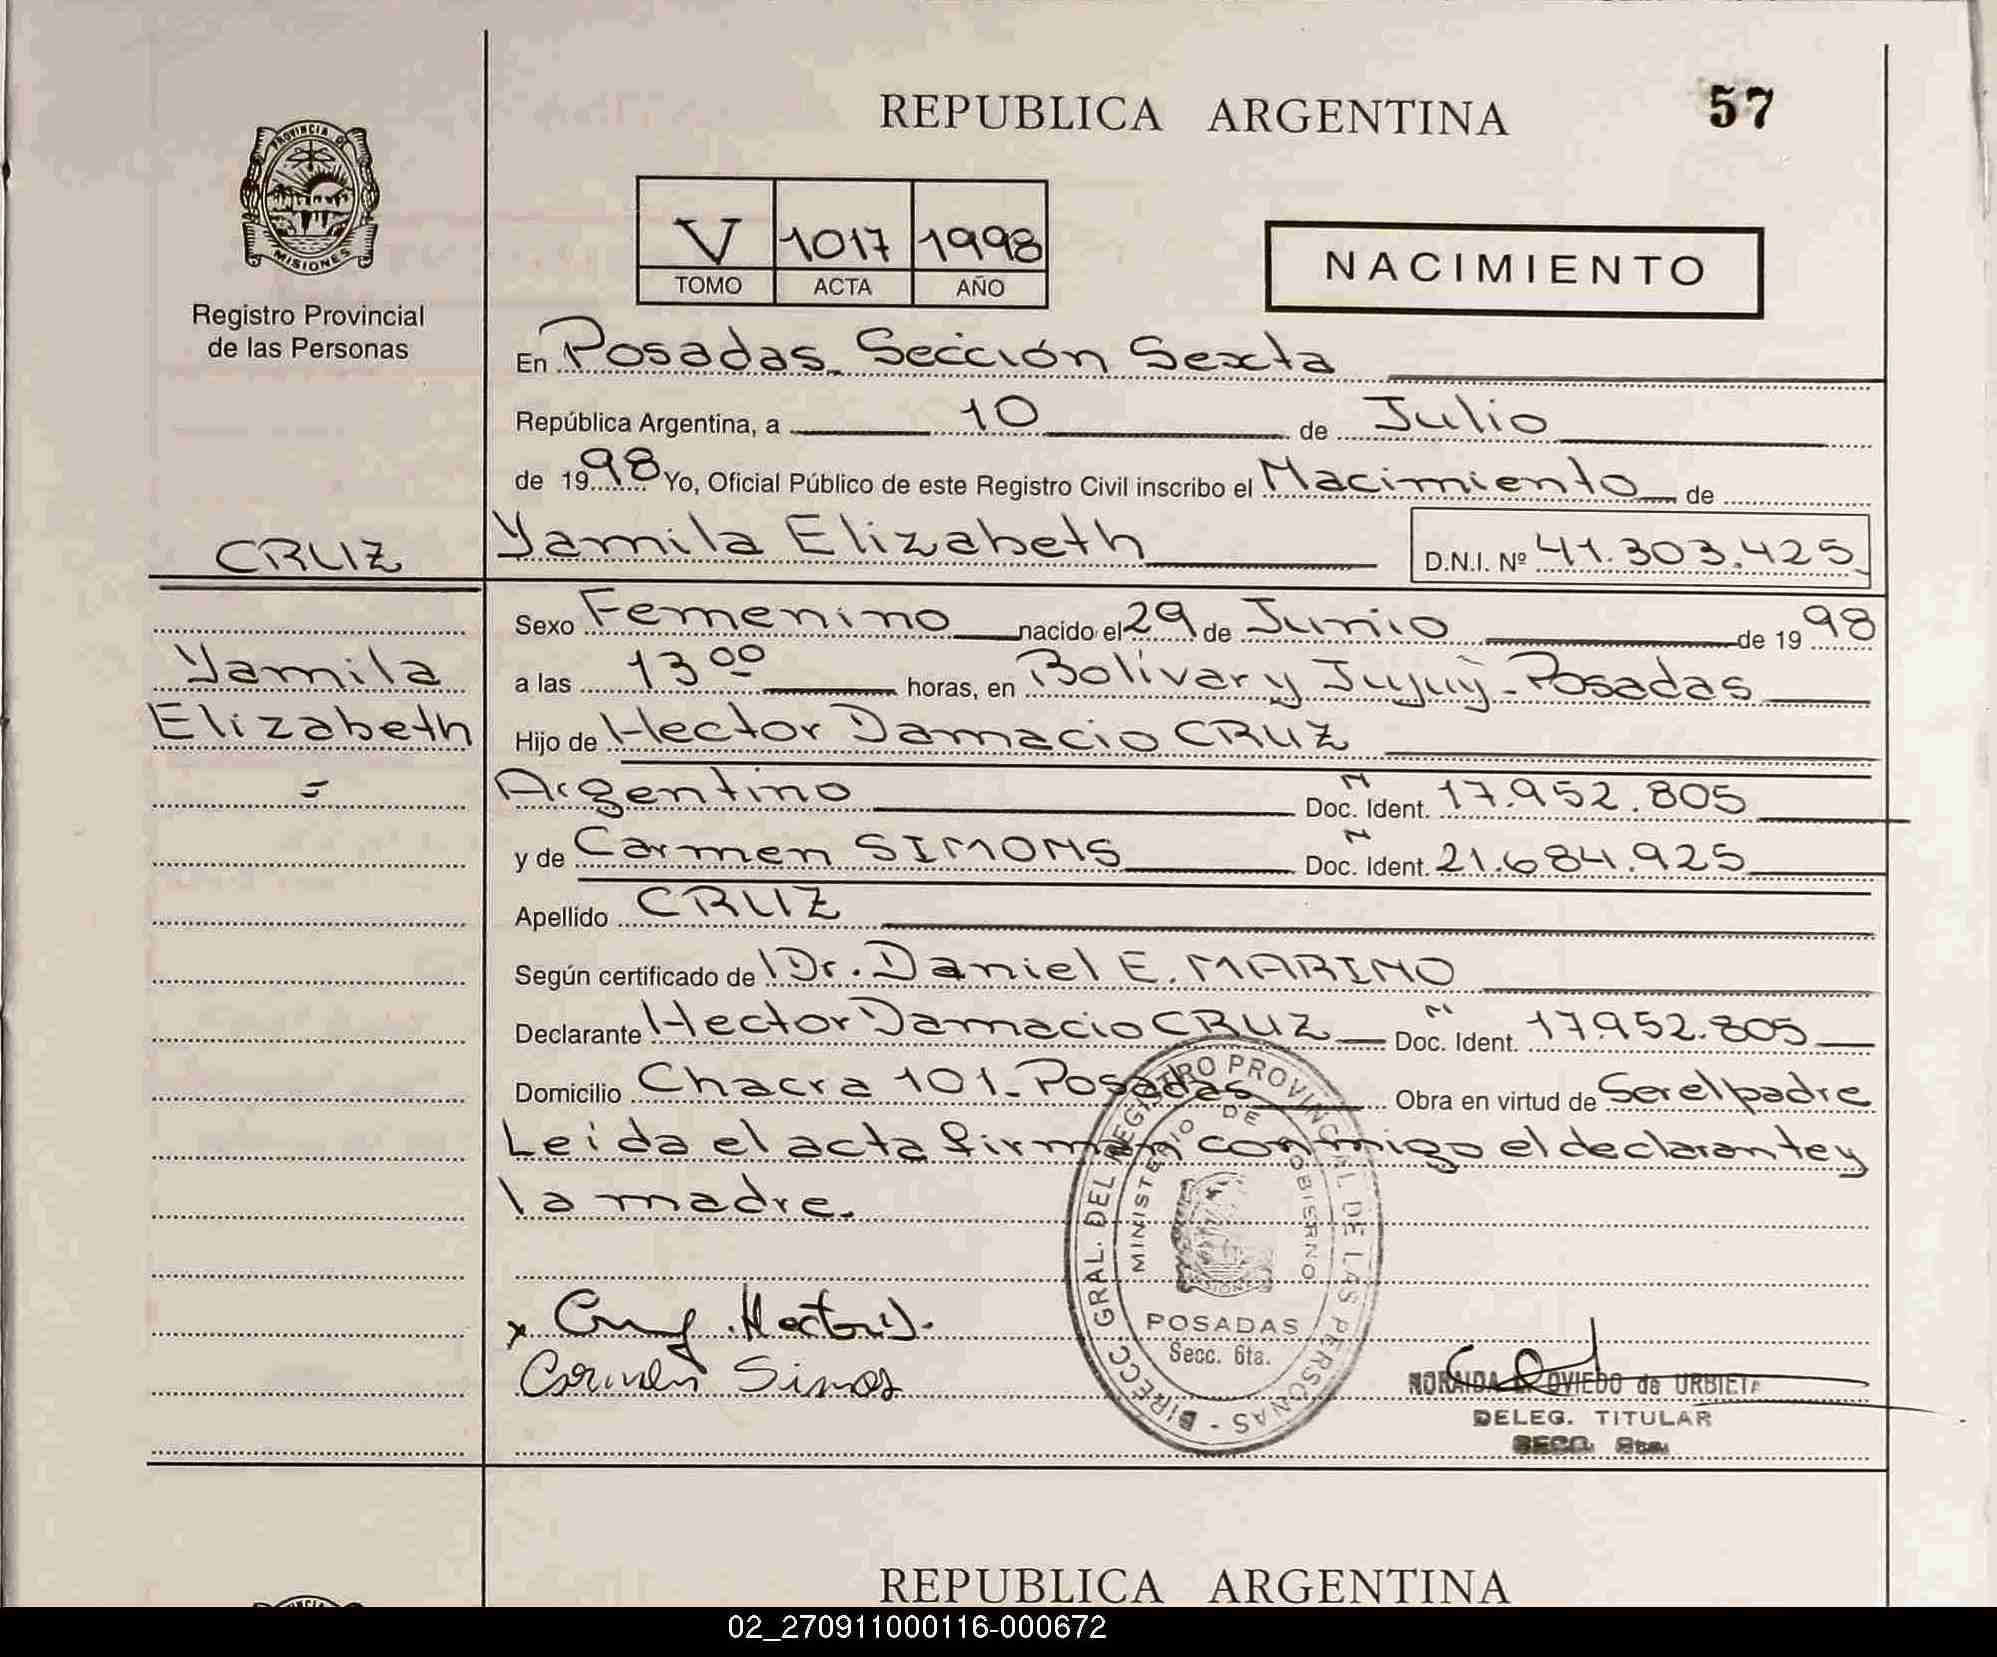 REPUBLICA ARGENTINA
57
PROVINCIA DE
MISIONES
Registro Provincial
de las Personas
V 1017 1998
TOMO ACTA AÑO
NACIMIENTO
En Posadas Sección Sexta
República Argentina, a 10 de Julio
de 1998 Yo, Oficial Público de este Registro Civil inscribo el Nacimiento de
CRUZ
Yamila Elizabeth D.N.I. Nº 41.303.425
Sexo Femenino nacido el 29 de Junio de 1998
Yamila
a las 13 00 horas, en Bolívar y Jujuy - Posadas
Elizabeth
Hijo de Hector Damacio CRUZ
=
Argentino Doc. Ident. N 17.952.805
y de Carmen SIMONS Doc. Ident. N 21.684.925
Apellido CRUZ
Según certificado de Dr. Daniel E. MARINO
Declarante Hector Damacio CRUZ Doc. Ident. N 17.952.805
Domicilio Chacra 101 - Posadas Obra en virtud de Ser el padre
Leida el acta firman conmigo el declarante y
la madre.
DIRECC GRAL. DEL REGISTRO PROVINCIAL DE LAS PERSONAS -
MINISTERIO DE GOBIERNO
POSADAS
Secc. 6ta.
x Cruz Hector D.
Carmen Simos
NORAIDA OVIEDO de URBIETA
DELEG. TITULAR
SECC. 6ta.
REPUBLICA ARGENTINA
02_270911000116-000672